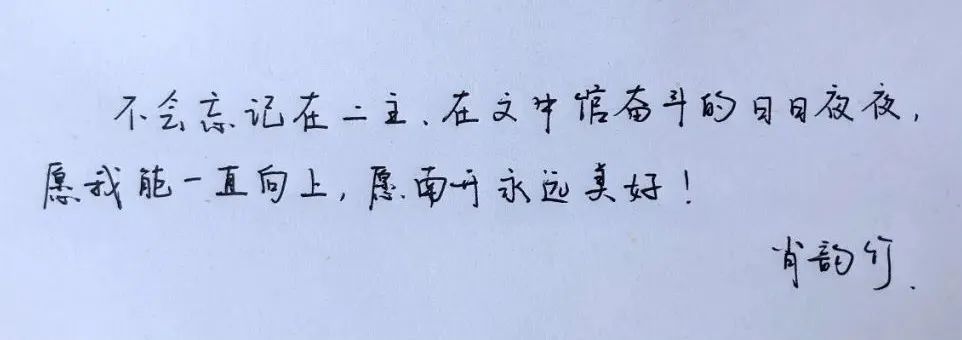 不会忘记在二主、在文中馆奋斗的日日夜夜，
愿我能一直向上，愿南开永远美好！
肖韵竹.